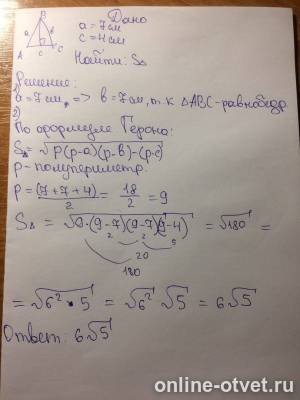 Дано
a = 7 см
c = 4 см
Найти: S∆
B
a
b
A
c
C
Решение:
1) a = 7 см, => b = 7 см, т. к ∆ABC - равнобедр.
2)
По формуле Герона:
S∆ = √p(p-a)(p-b)-(p-c)
p - полупериметр.
p = (7+7+4)/2 = 18/2 = 9
S∆ = √9·(9-7)(9-7)(9-4) = √180 =
2 2 5
20
180
= √6²·5 = √6² √5 = 6√5
Ответ: 6√5
online-otvet.ru